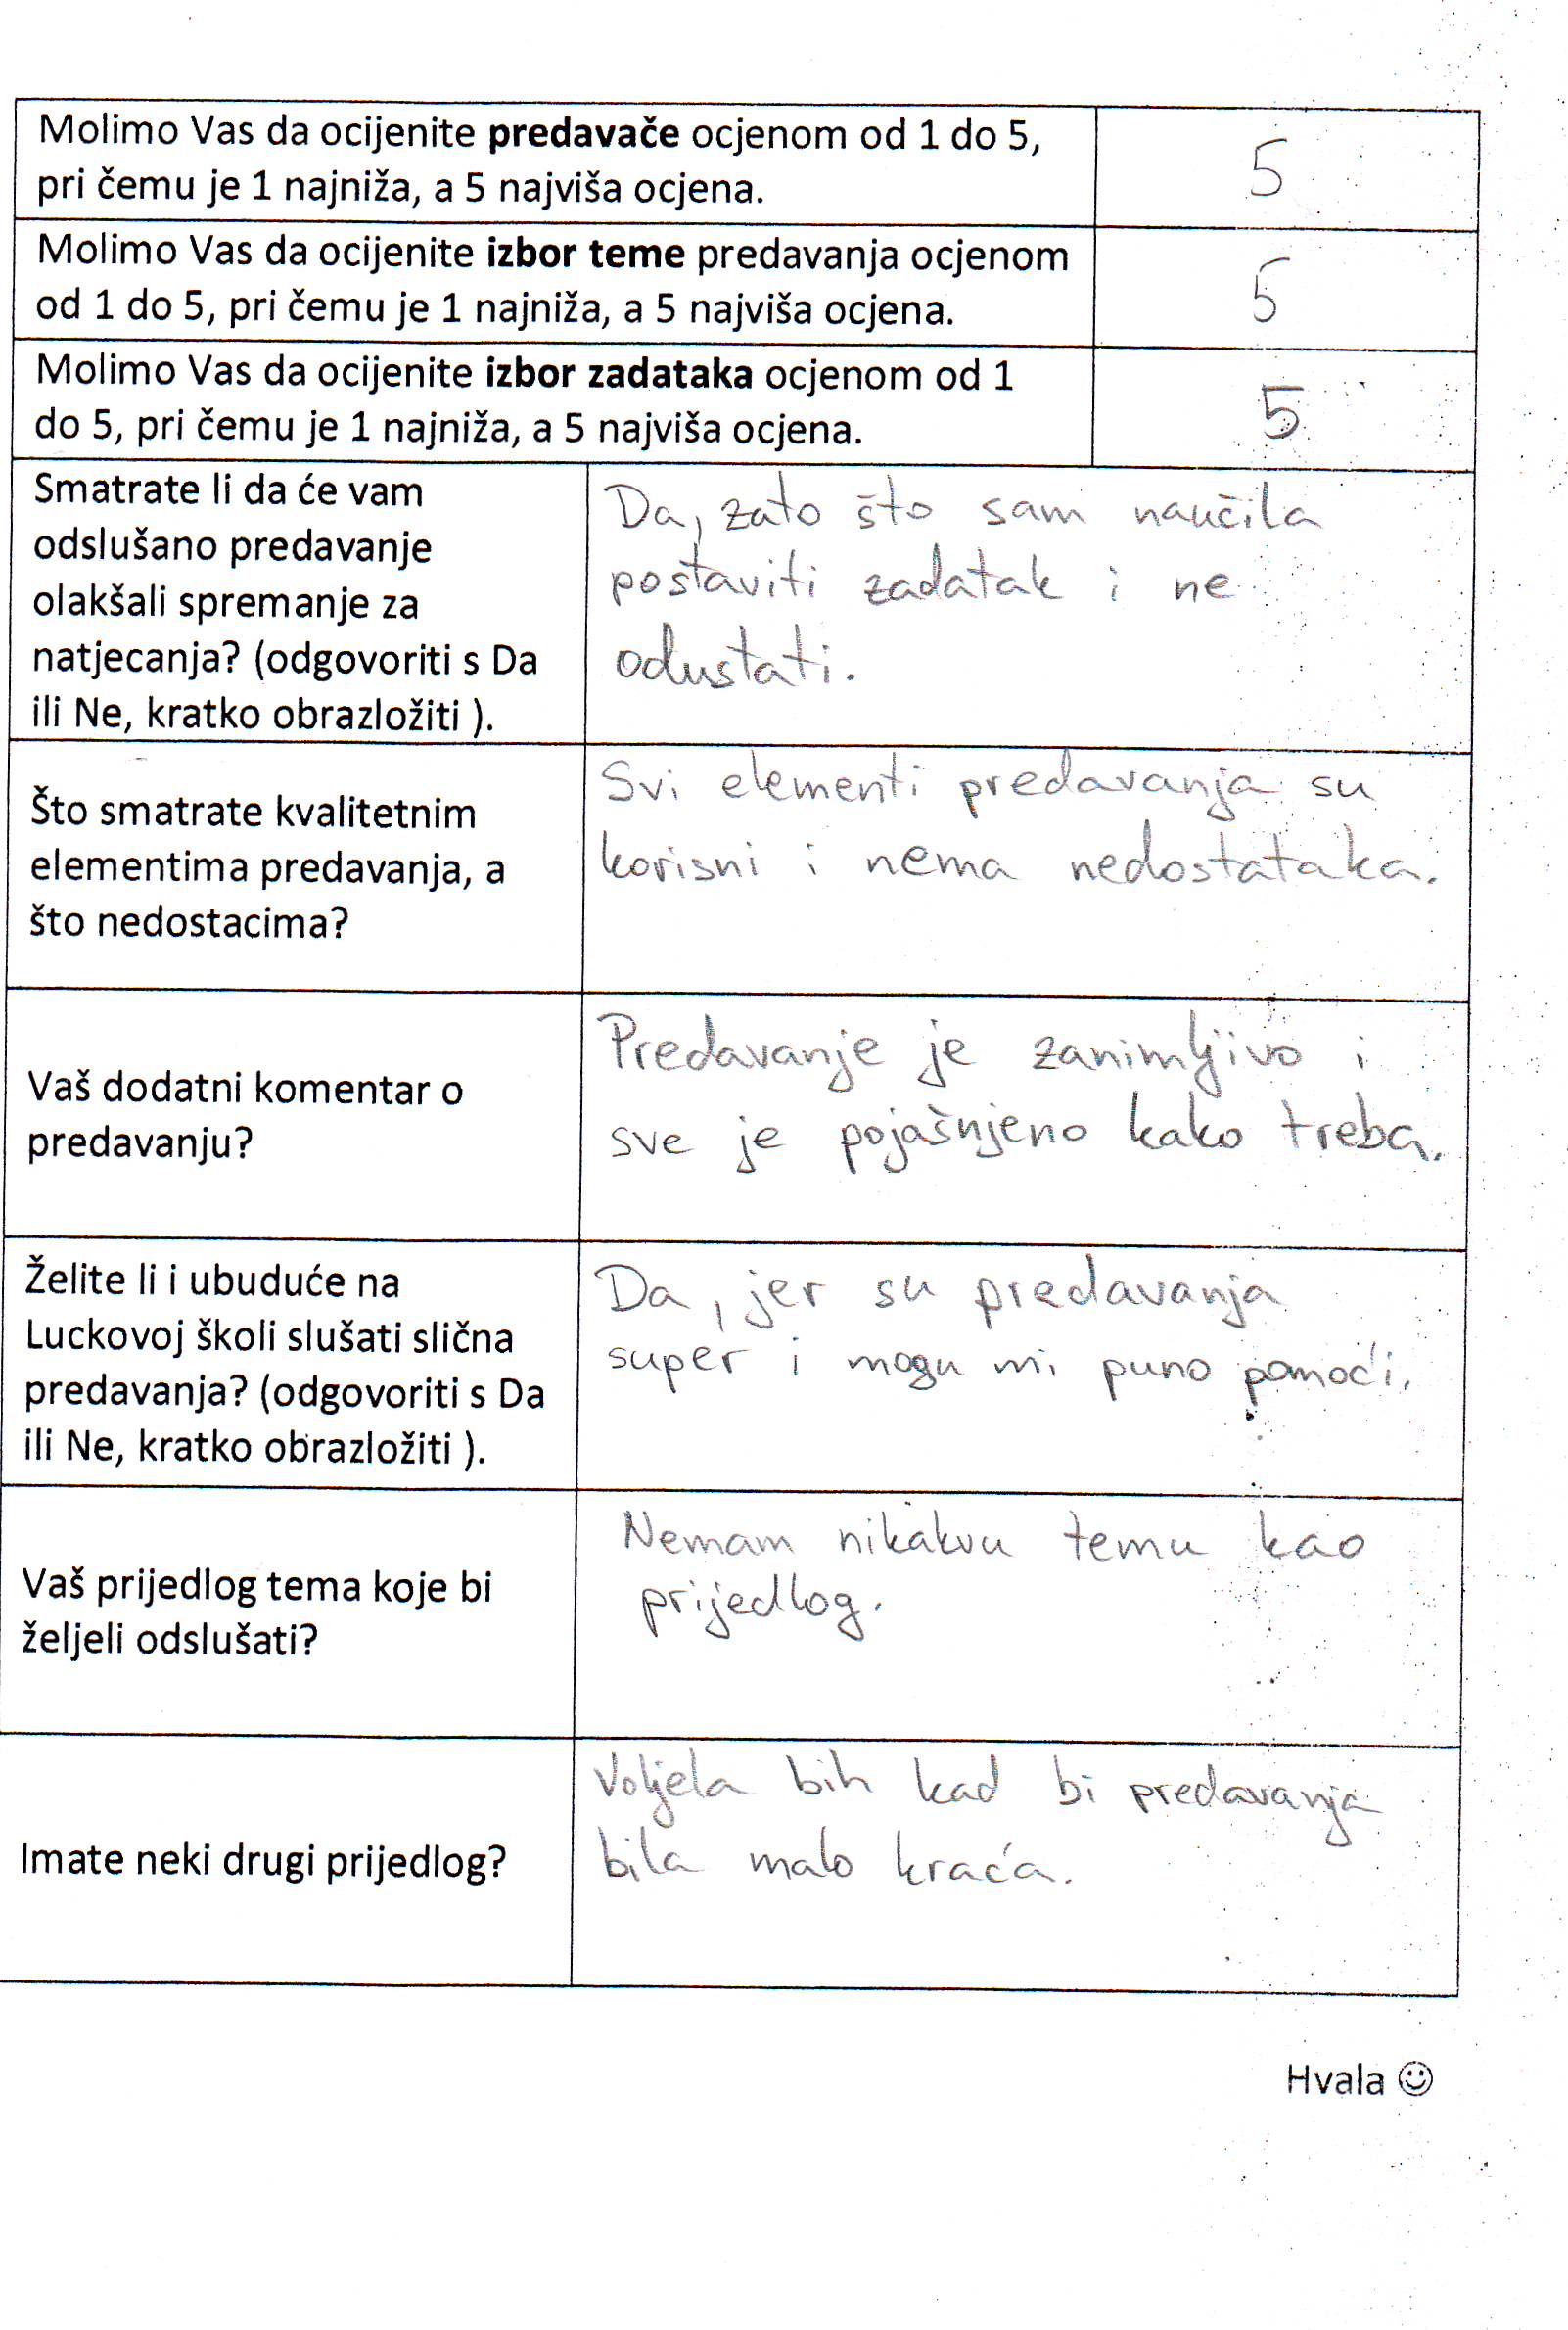 Molimo Vas da ocijenite predavače ocjenom od 1 do 5,
pri čemu je 1 najniža, a 5 najviša ocjena.
5
Molimo Vas da ocijenite izbor teme predavanja ocjenom
od 1 do 5, pri čemu je 1 najniža, a 5 najviša ocjena.
5
Molimo Vas da ocijenite izbor zadataka ocjenom od 1
do 5, pri čemu je 1 najniža, a 5 najviša ocjena.
5
Smatrate li da će vam
odslušano predavanje
olakšali spremanje za
natjecanja? (odgovoriti s Da
ili Ne, kratko obrazložiti ).
Da, zato što sam naučila
postaviti zadatak i ne
odustati.
Što smatrate kvalitetnim
elementima predavanja, a
što nedostacima?
Svi elementi predavanja su
korisni i nema nedostataka.
Vaš dodatni komentar o
predavanju?
Predavanje je zanimljivo i
sve je pojašnjeno kako treba.
Želite li i ubuduće na
Luckovoj školi slušati slična
predavanja? (odgovoriti s Da
ili Ne, kratko obrazložiti ).
Da, jer su predavanja
super i mogu mi puno pomoći.
Vaš prijedlog tema koje bi
željeli odslušati?
Nemam nikakvu temu kao
prijedlog.
Imate neki drugi prijedlog?
Voljela bih kad bi predavanja
bila malo kraća.
Hvala ☺